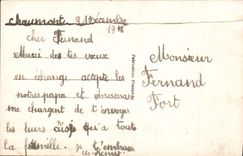 Chaumont 2 Décembre
19
cher Fernand
Merci des tes voeux
en échange accepte les
notres papa et maman
me chargent de t'envoyer
les leurs ainsi qu'a toute
la famille. je t'embrasse
Fabrication Française
Monsieur
Fernand
Fort